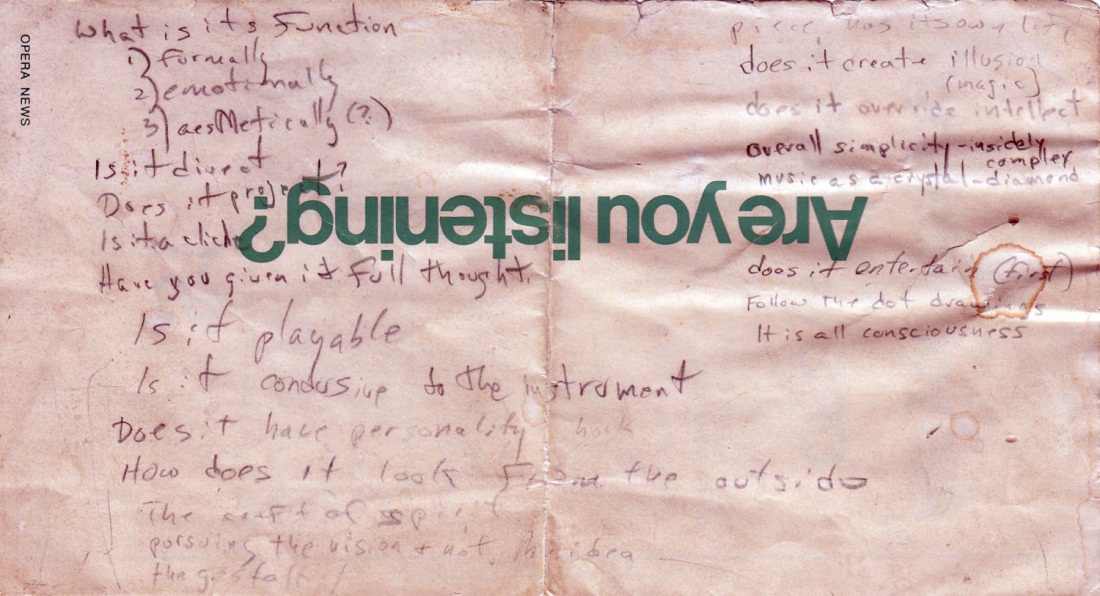 OPERA NEWS
What is its Function
1) Formally
2) emotionally
3) aesthetically (?)
Is it direct
Does it project?
Is it a cliche
Have you given it full thought.
Is it playable
Is it condusive to the instrument
Does it have personality hook
How does it look From the outside
The craft of spirit
porsuing the vision + not the idea
the gestalt
Are you listening?
piece has its own life
does it create illusion
(magic)
does it override intellect
overall simplicity - insidely
complex
music as a crystal - diamond
does it entertain (first)
Follow the dot drawings
It is all consciousness